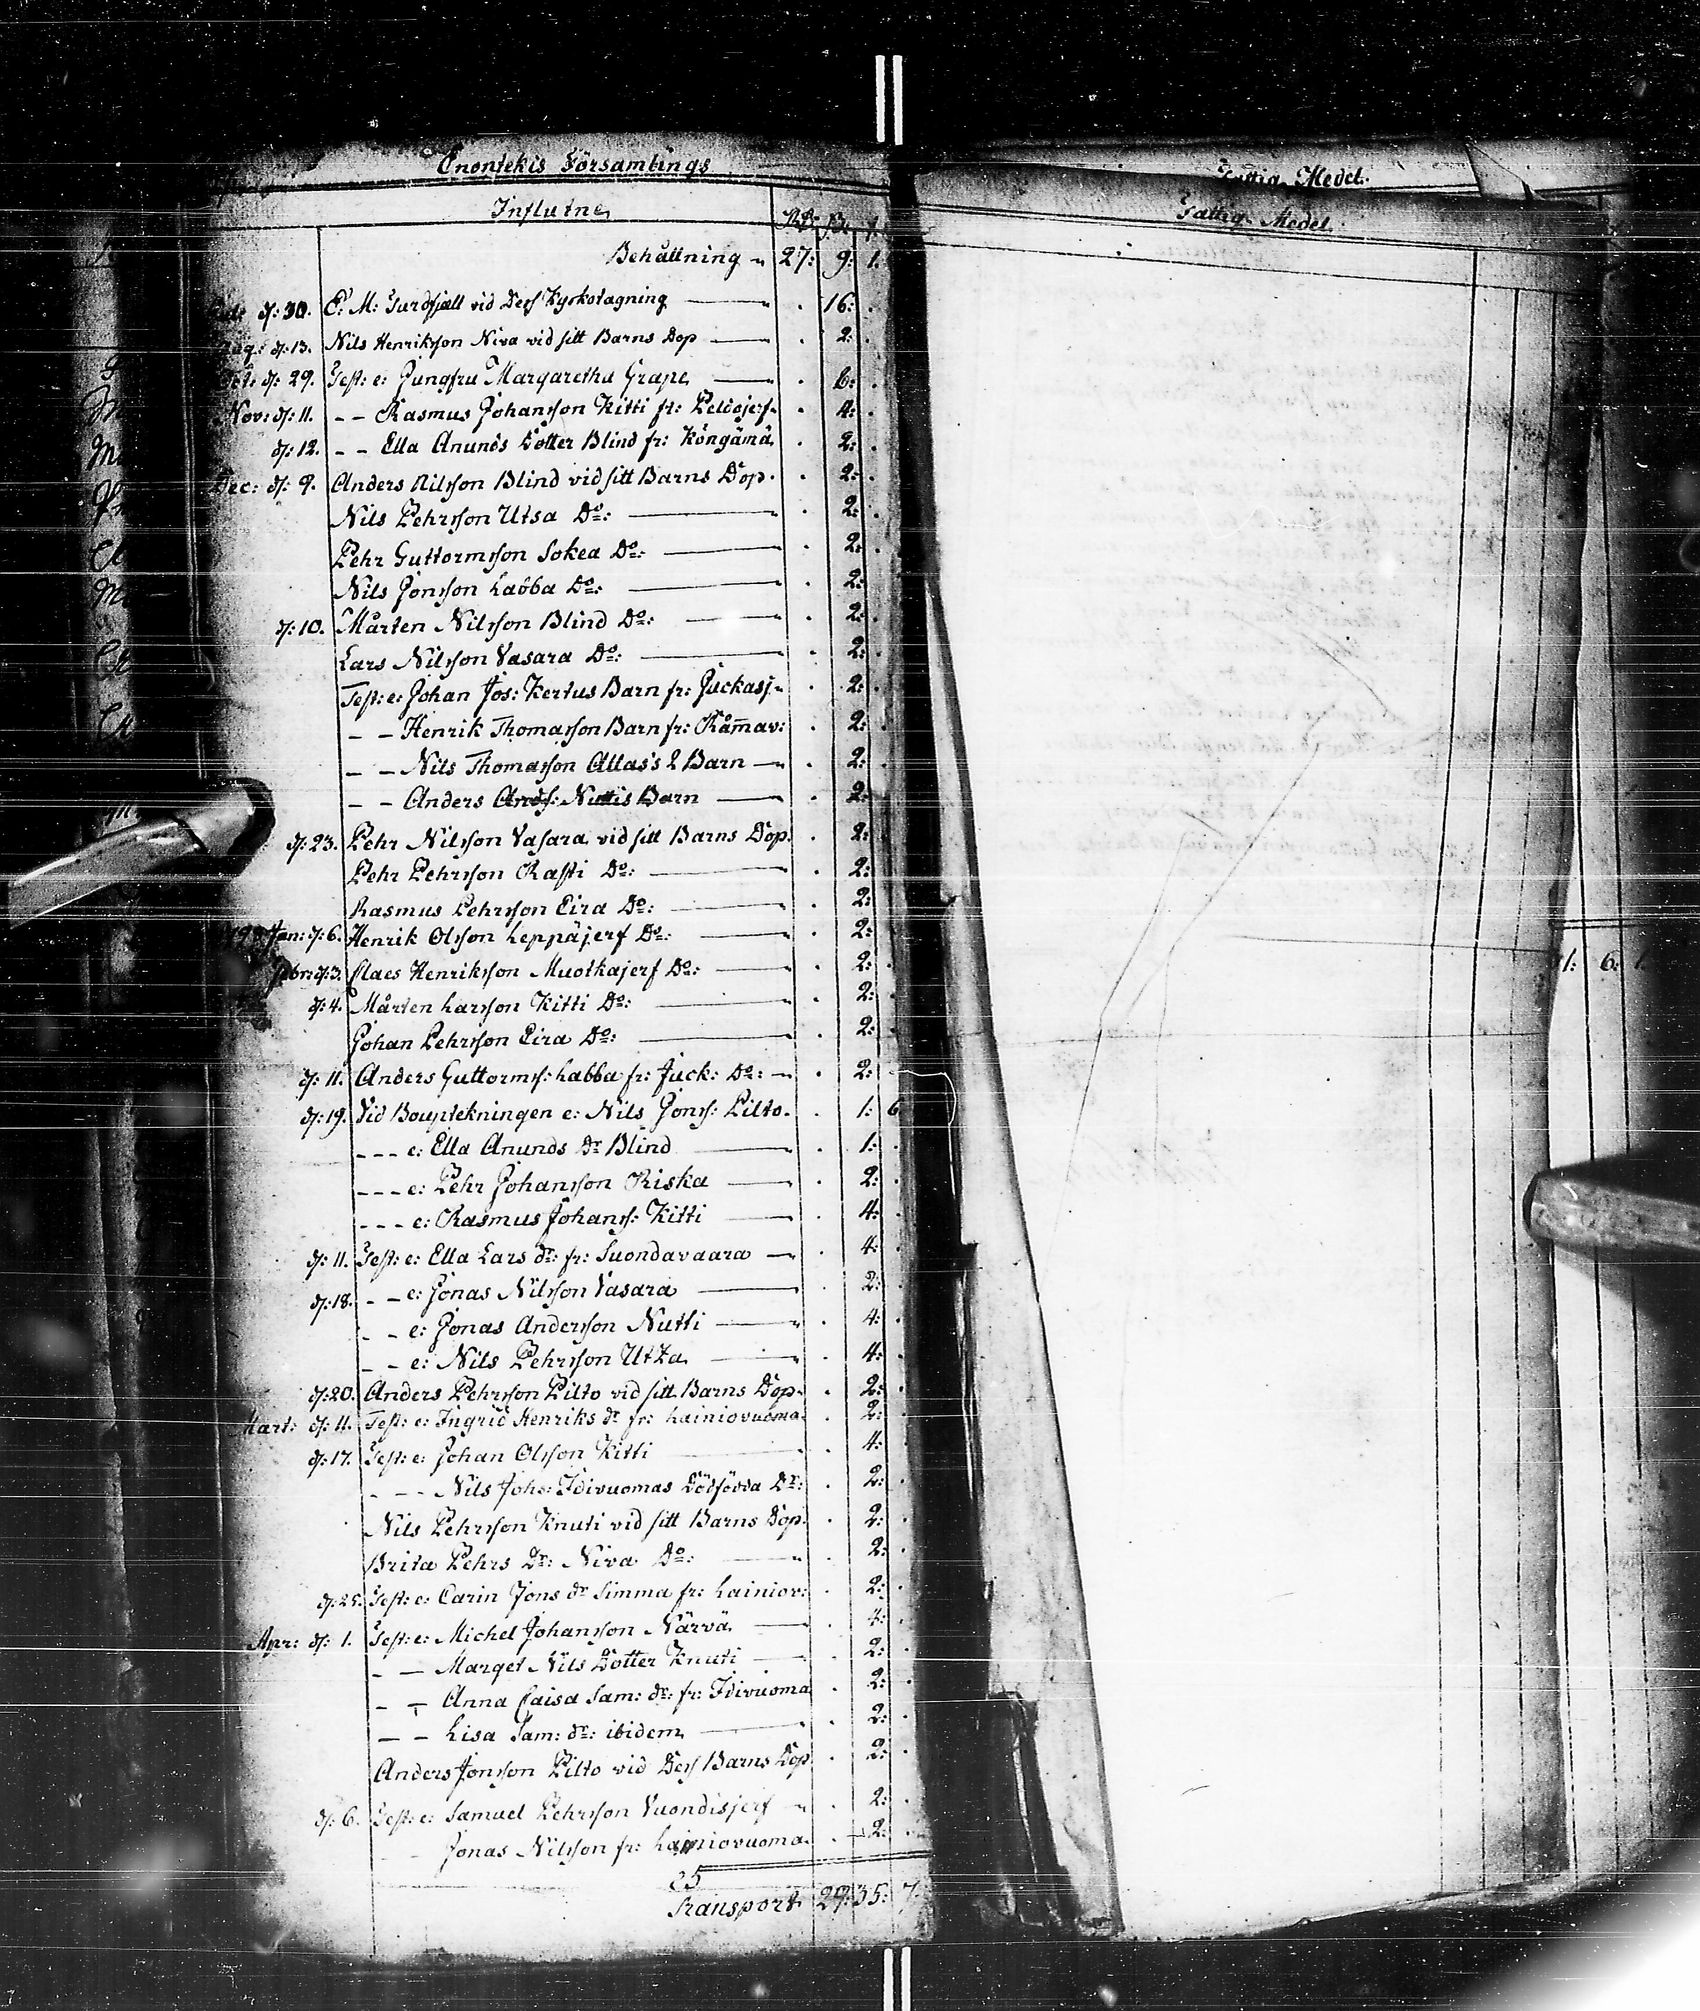 Enontekis Församlings
Influtne Rdr ß: r.
Behållning 27: 9: 1.
d: 30. E: M: Turdfjæll vid Dess Kyrkotagning . 16: .
Aug: d: 13. Nils Henriksson Niva vid sitt Barns Dop . 2: .
Oct: d: 29. Test: e: Jungfru Margaretha Grape . 6: .
Nov: d: 11. - - Rasmus Johansson Kitti fr: Peldojerf . 4: .
d: 12. - - Ella Anunds Dotter Blind fr: Köngämä . 2: .
Dec: d: 9. Anders Nilsson Blind vid sitt Barns Dop . 2: .
Nils Pehrsson Utsa Do: . 2: .
Pehr Guttormsson Sokea Do: . 2: .
Nils Jonsson Labba Do: . 2: .
d: 10. Mårten Nilsson Blind Do: . 2: .
Lars Nilsson Vasara Do: . 2: .
Test: e: Johan Jos: Kertus Barn fr: Juckasj . 2: .
- - Henrik Thomasson Barn fr: Råmav: . 2: .
- - Nils Thomasson Allas's 2 Barn . 2: .
- - Anders Ands: Nuttis Barn . 2: .
d: 23. Pehr Nilsson Vasara vid sitt Barns Dop . 2: .
Pehr Pehrsson Rasti Do: . 2: .
Rasmus Pehrsson Eira Do: . 2: .
Jan: d: 6. Henrik Olsson Leppäjerf Do: . 2: .
Febr: d: 3. Claes Henriksson Muotkajerf Do: . 2: .
d: 4. Mårten Larsson Kitti Do: . 2: .
Johan Pehrsson Eira Do: . 2: .
d: 11. Anders Guttorms: Labba fr: Juck: Do: . 2:
d: 19. Vid Bouptekningen e: Nils Jons: Pilto . 1: 6
- - - e: Ella Anunds Dr Blind . 1: .
- - - e: Pehr Johansson Riska . 2: .
- - - e: Rasmus Johans: Kitti . 4: .
d: 11. Test: e: Ella Lars dr: fr: Suondavaara . 4: .
d: 18. - - e: Jonas Nilsson Vasara . 2: .
- - e: Jonas Andersson Nutti . 4: .
- - e: Nils Pehrsson Utza . 4: .
d: 20. Anders Pehrsson Pilto vid sitt Barns Dop . 2: .
Mart: d: 11. Test: e: Ingrid Henriks dr fr: Lainiovuoma . 2: .
d: 17. Test: e: Johan Olsson Kitti . 4: .
- - - Nils Johs: Idivuomas Dödfödda Dr: . 2: .
Nils Pehrsson Knuti vid sitt Barns Dop . 2: .
Brita Pehrs Dr: Niva Do: . 2: .
d: 25. Test: e: Carin Jons dr Simma fr: Lainiov: . 2: .
Apr: d: 1. Test: e: Michel Johansson Närvä . 4: .
- - Marget Nils Dotter Knuti . 2: .
- - Anna Caisa Sam: dr: fr: Idivuoma . 2: .
- - Lisa Sam: dr: ibidem . 2: .
Anders Jonsson Pilto vid Dess Barns Dop . 2: .
d: 6. Test: e: Samuel Pehrsson Vuondisjerf . 2: .
- - Jonas Nilsson fr: Lainiovuoma . 2: .
Transport 29: 35: 7:
Fattig Medel.
Fattig Medel.
1: 6: 1.